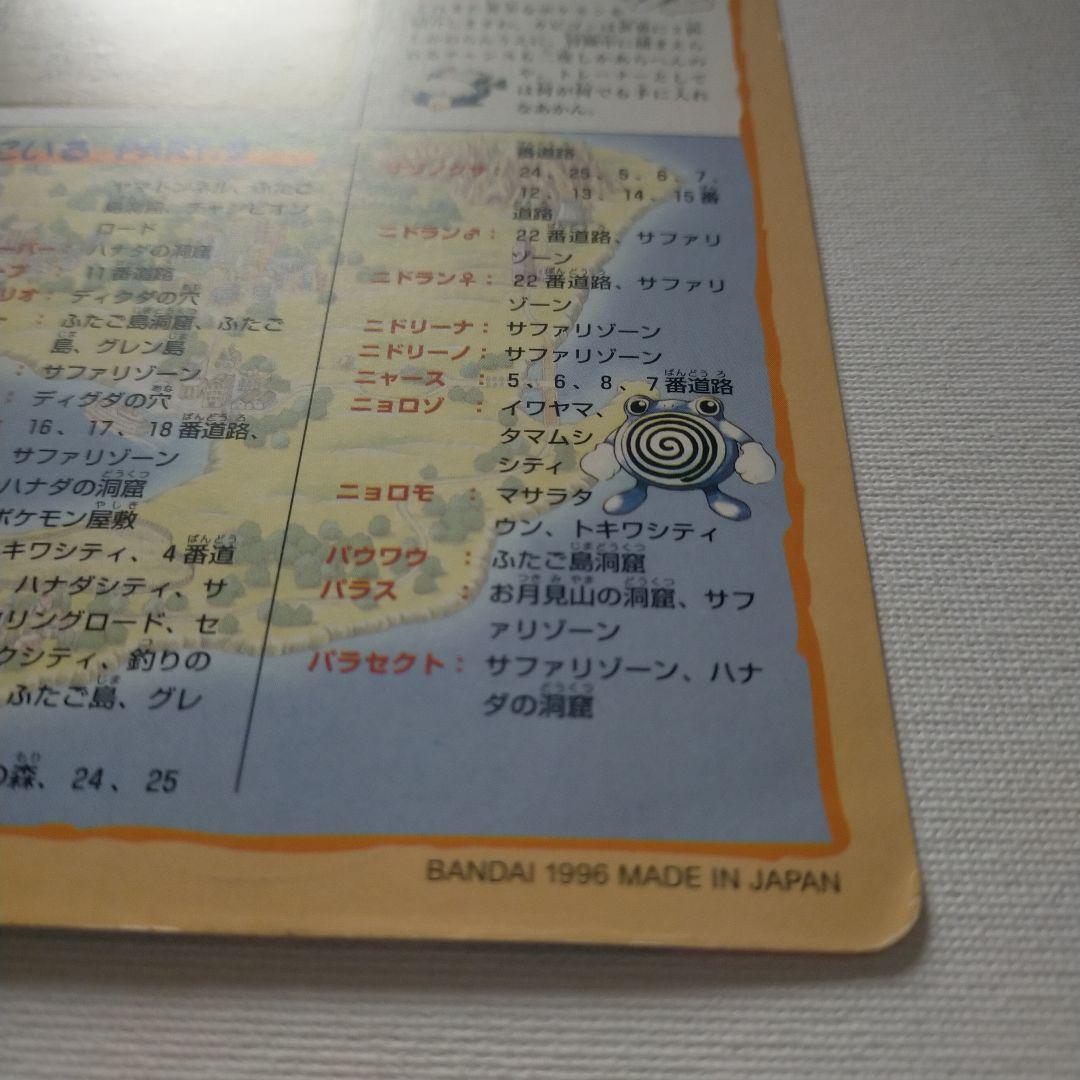 は何が何でも手に入れ
なあかん。
ヤマトンネル、ふたご
ロード
ハナダの洞窟
11番道路
ディグダの穴
ふたご島洞窟、ふたご
島、グレン島
サファリゾーン
ディグダの穴
16、17、18番道路、
サファリゾーン
ハナダの洞窟
ポケモン屋敷
キワシティ、4番道
ハナダシティ、サ
リングロード、セ
クシティ、釣りの
ふたご島、グレ
森、24、25
番道路
ナゾノクサ：24、25、5、6、7、
12、13、14、15番
道路
ニドラン♂：22番道路、サファリ
ゾーン
ニドラン♀：22番道路、サファリ
ゾーン
ニドリーナ：サファリゾーン
ニドリーノ：サファリゾーン
ニャース：5、6、8、7番道路
ニョロゾ：イワヤマ、
タマムシ
シティ
ニョロモ：マサラタ
ウン、トキワシティ
パウワウ：ふたご島洞窟
パラス：お月見山の洞窟、サフ
ァリゾーン
パラセクト：サファリゾーン、ハナ
ダの洞窟
BANDAI 1996 MADE IN JAPAN